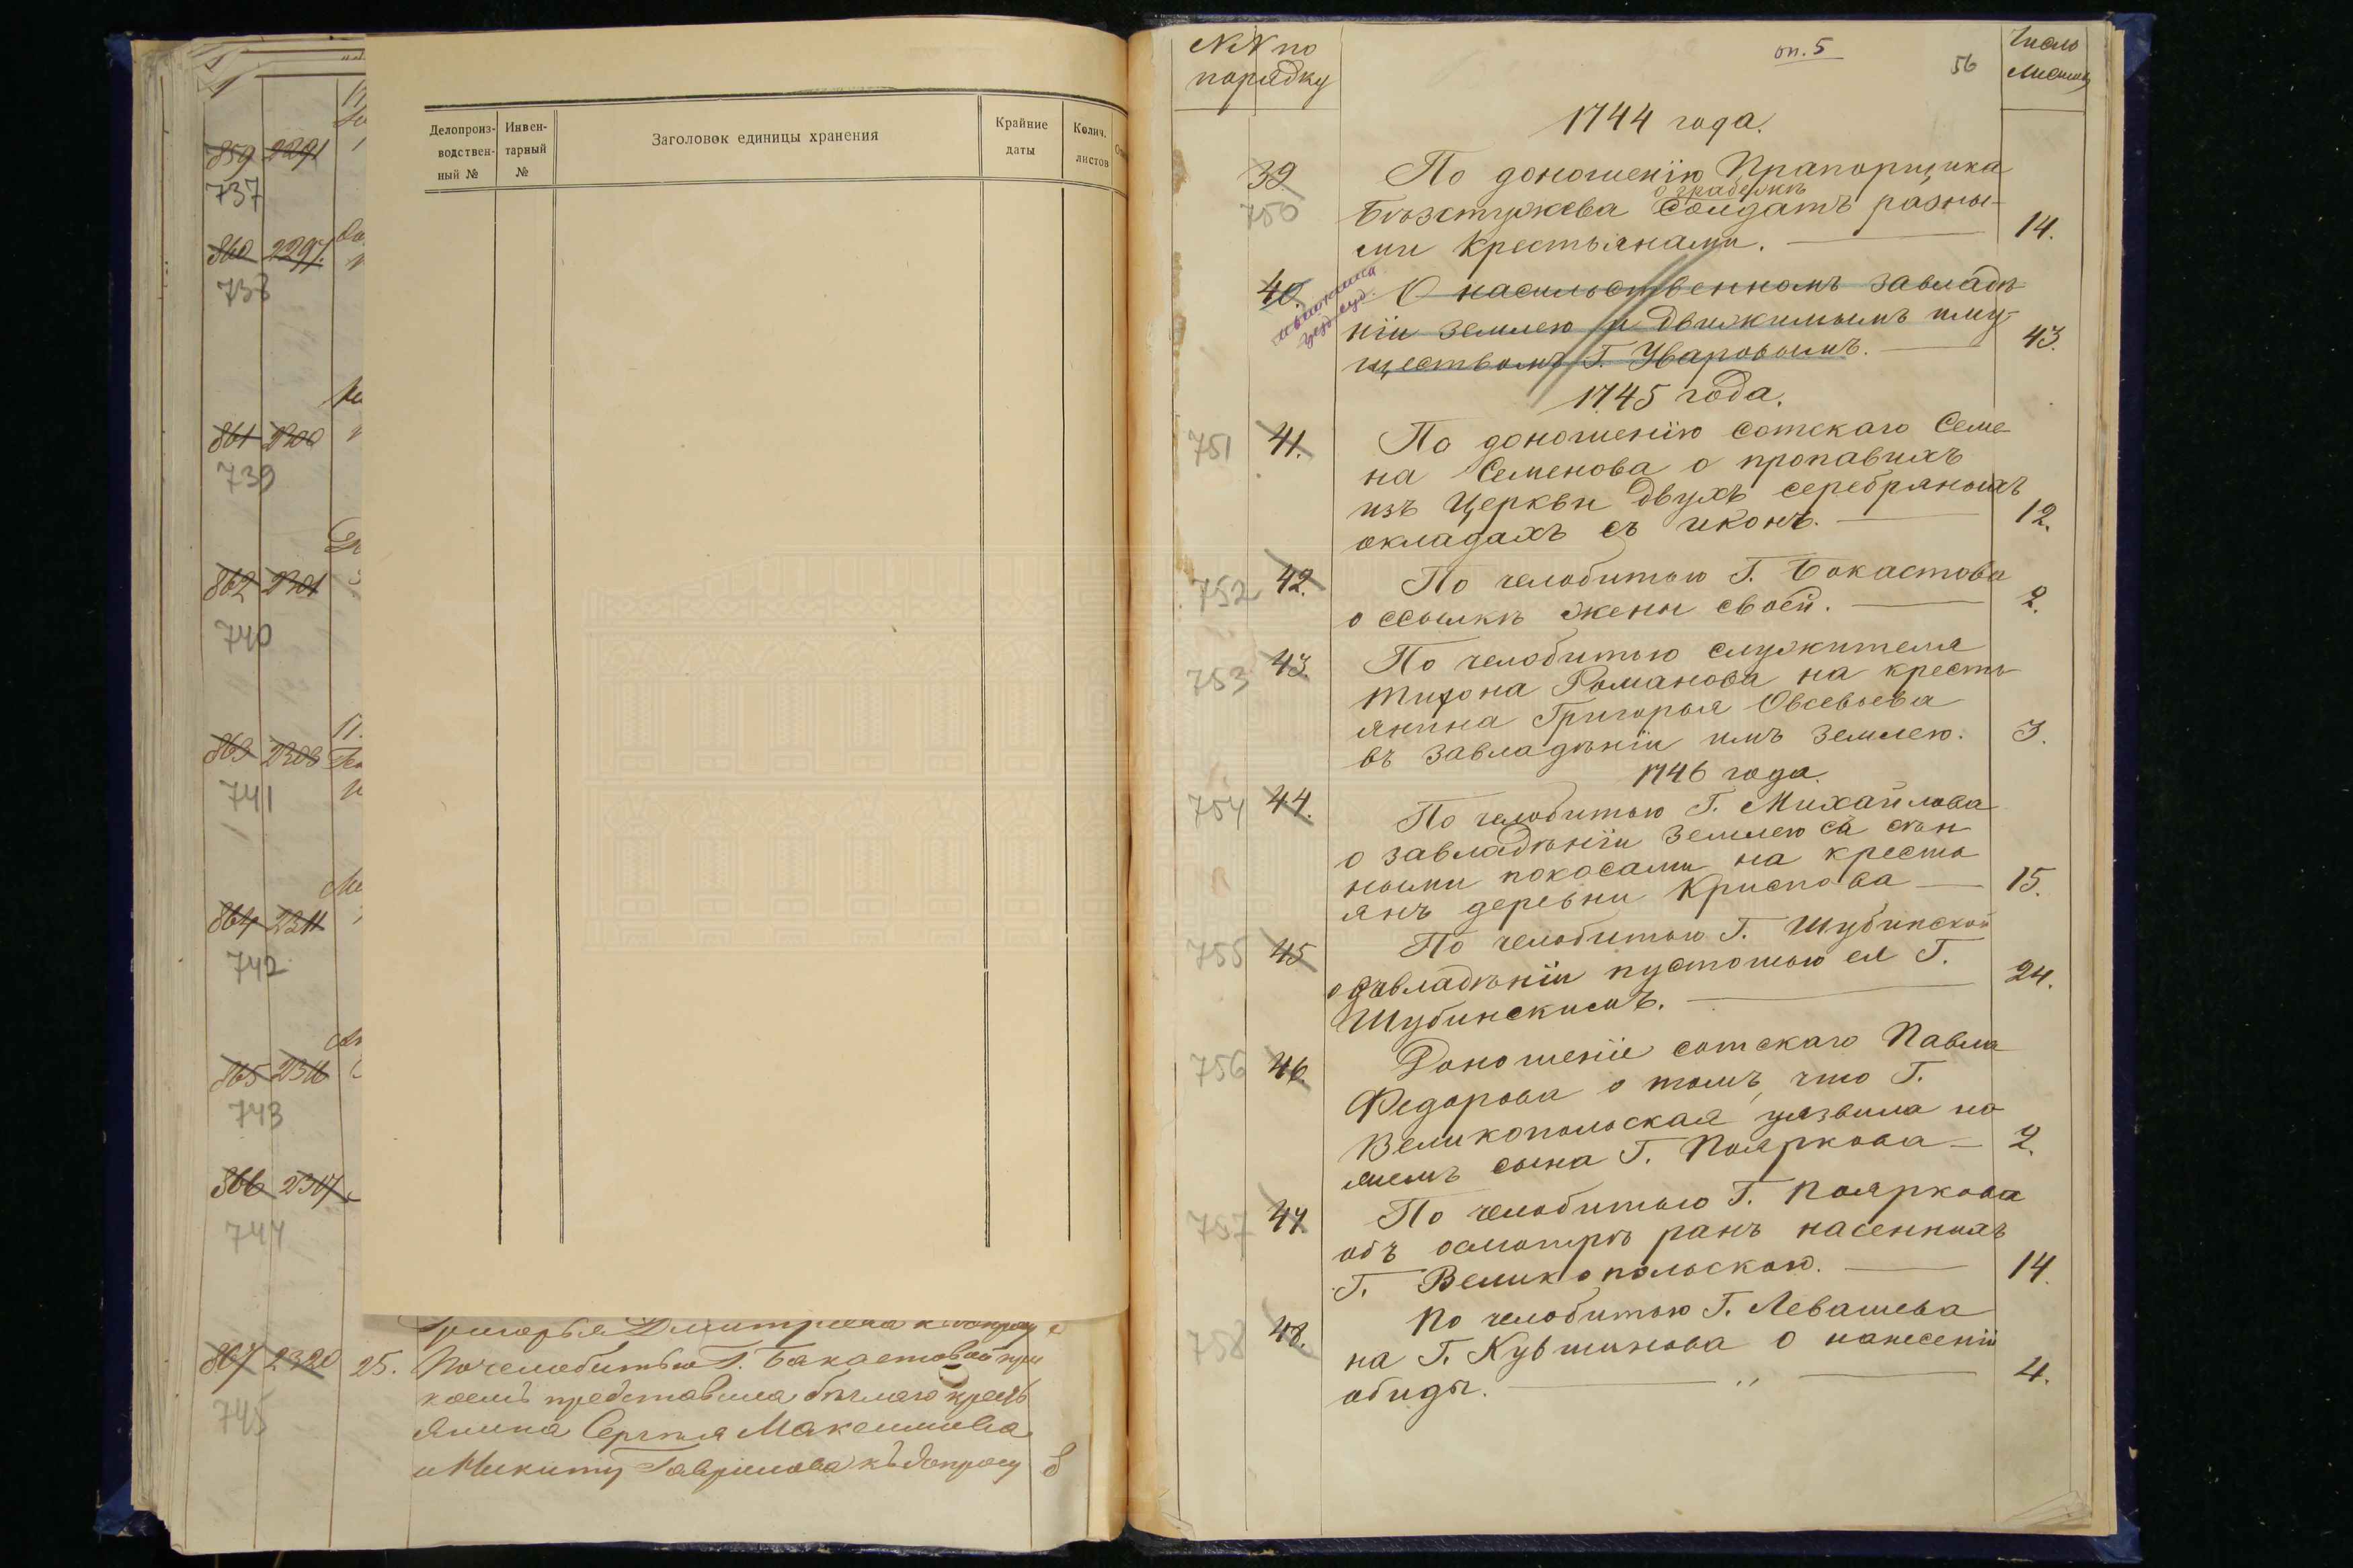 859 2291
737
860 2297.
738
861 2300
739
862 2301
740
863 2308
741
864 2311
742
865 2316
743
866 2317
744
Делопроиз-
водствен-
ный №
Инвен-
тарный
№
Заголовок единицы хранения
Крайние
даты
Колич.
листов
Григорья Дмитриева к допросу
867 2320 25. По челобитью Г. Бакастовой при
745
коемъ представила бѣглаго кресть
янина Сергѣя Максимова
и Никиту Гаврилова къ допросу 8
№№ по
порядку
оп. 5
56
Число
листовъ
1744 года.
39 По доношенію Прапорщика
о грабежѣ
750 Бѣзстужева солдатъ разны-
ми крестьянами. 14.
40. О насильственномъ завладѣ
уезд. суд.
ніи землею и движимымъ иму-
ществомъ Г. Уваровымъ. 43.
1745 года.
751 41. По доношенію сотскаго Семе
на Семенова о пропавихъ
изъ Церкви двухъ серебряныхъ
окладахъ съ иконъ. 12.
752 42. По челобитью Г. Бокастова
о ссылкѣ жены своей. 2.
753 43. По челобитью служителя
Тихона Романова на кресть
янина Григорья Овсевьева
въ завладѣніи имъ землею. 3.
1746 года.
754 44. По челобитью Г. Михайлова
о завладѣніи землею съ сѣн
ными покосами на кресть
янъ деревни Криспова 15.
755 45 По челобитью Г. Шубинской
о завладѣніи пустошью ея Г.
Шубинскимъ. 24.
756 46. Доношеніе сотскаго Павла
Федорова о томъ, что Г.
Великопольская уязвила но
жемъ сына Г. Пояркова 2.
757 47 По челобитью Г. Пояркова
объ осмотрѣ ранъ насенныхъ
Г. Великопольскою. 14.
758 48. По челобитью Г. Левашева
на Г. Кувшинова о нанесеніи
обиды. 4.